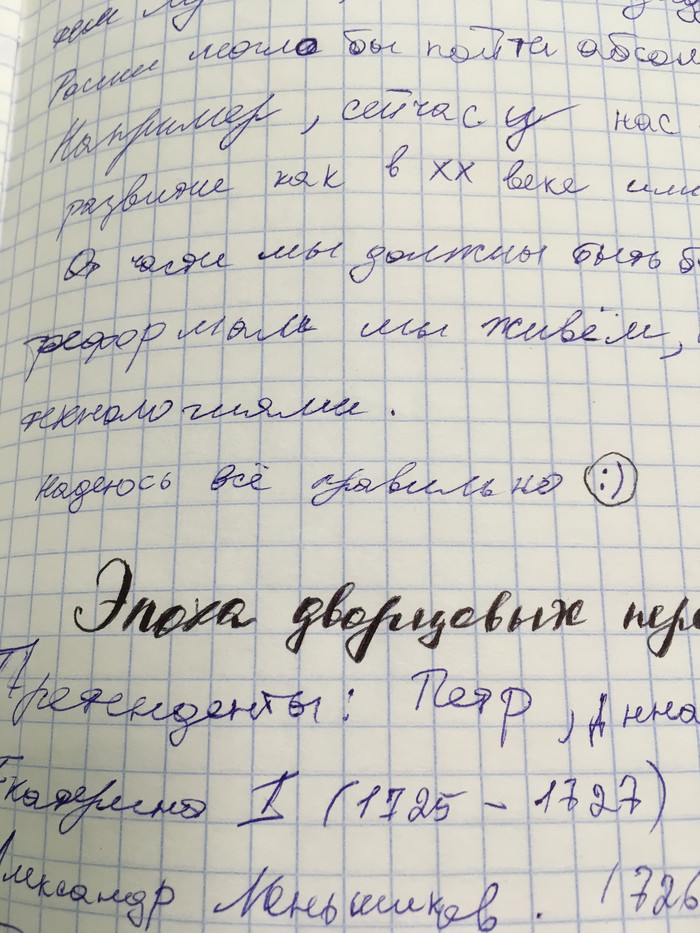 могло бы пойти
Например, сейчас у нас
развитие как в XX веке или
От части мы должны быть
мы живём,
технологиями.
надеюсь всё правильно :)
Эпоха дворцовых
Претенденты: Петр, Анна
Екатерина I (1725 - 1727)
Александр Меньшиков. 1726